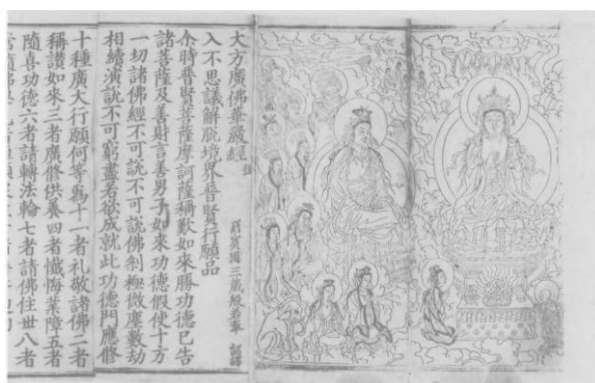 大方廣佛華嚴經
入不思議解脫境界普賢行願品
罽賓國三藏般若奉
尒時普賢菩薩摩訶薩稱歎如來勝功德已告
諸菩薩及善財言善男子如來功德假使十方
一切諸佛經不可說不可說佛刹極微塵數劫
相續演說不可窮盡若欲成就此功德門應修
十種廣大行願何等為十一者礼敬諸佛二者
稱讃如來三者廣修供養四者懺悔業障五者
隨喜功德六者請轉法輪七者請佛住世八者